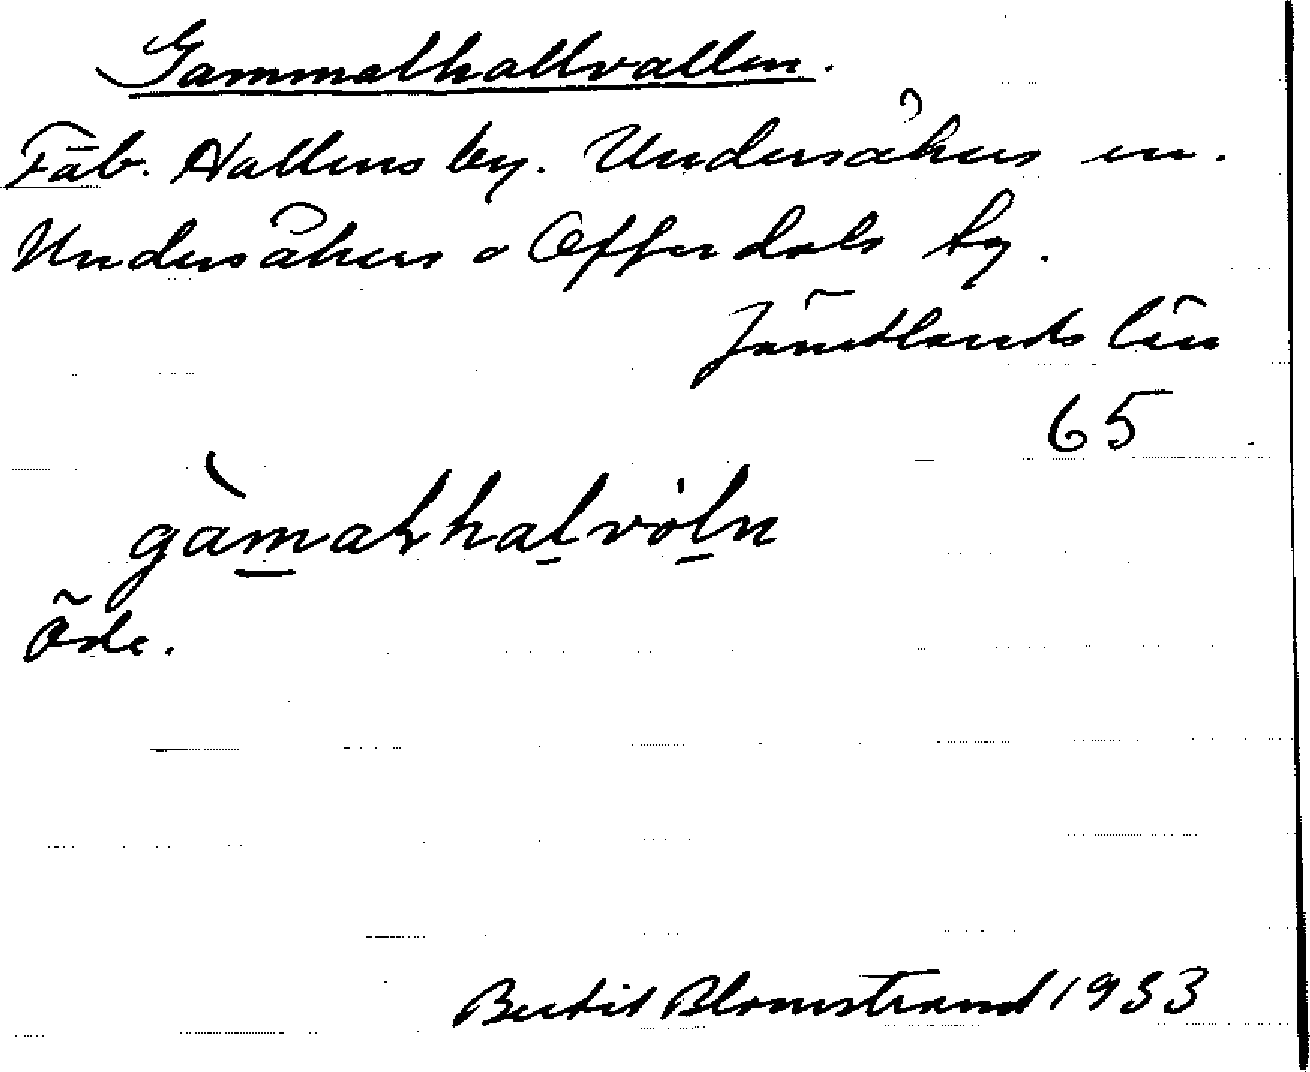 Gammalhallvallen.
Fäb. Hallens by. Undersåkers sn.
Undersåkers o Offerdals tg.
Jämtlands län
65
gàmaḷhalvòln
Öde.
Bertil Blomstrand 1933